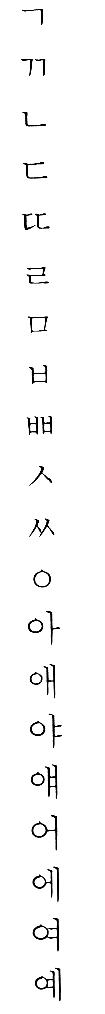 ㄱ
ㄲ
ㄴ
ㄷ
ㄸ
ㄹ
ㅁ
ㅂ
ㅃ
ㅅ
ㅆ
ㅇ
아
애
야
얘
어
에
여
예